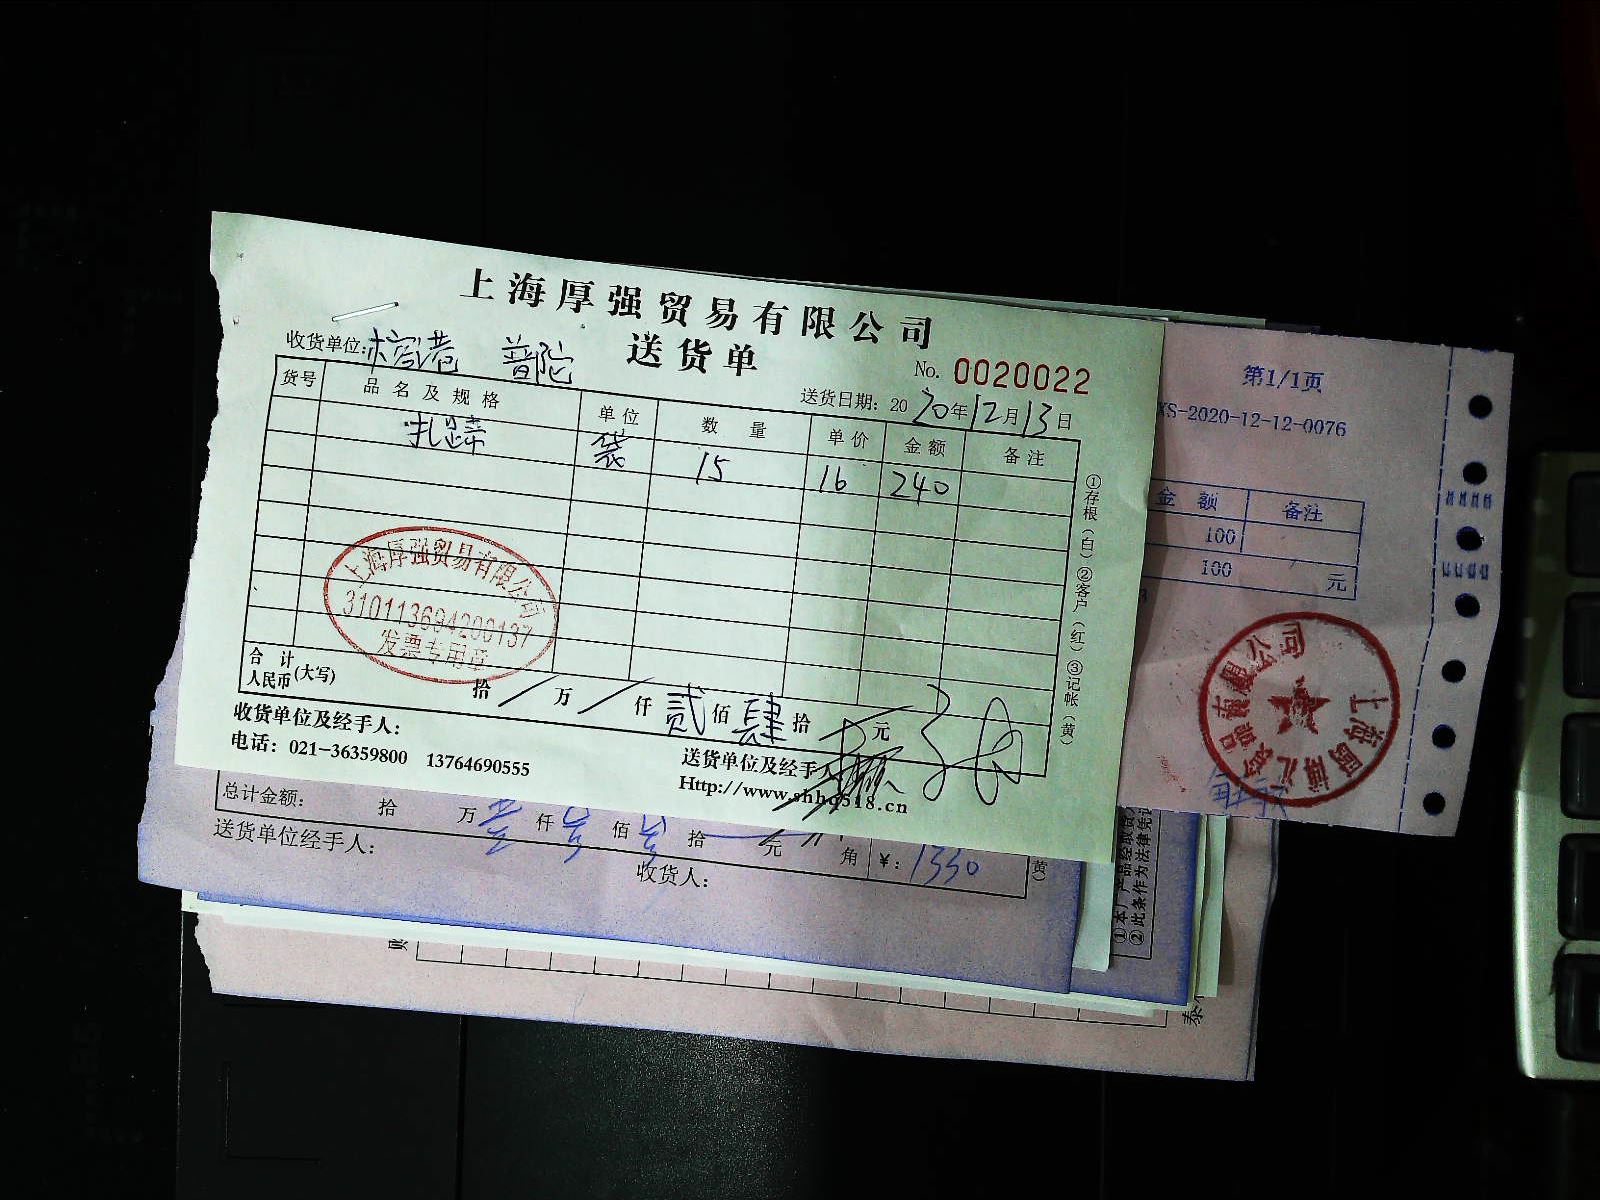 上海厚强贸易有限公司
送货单
收货单位: 普陀
No. 0020022
送货日期: 2020年12月13日
货号 品名及规格 单位 数量 单价 金额 备注
扎蹄 袋 15 16 240
①存根(白)②客户(红)③记帐(黄)
上海厚强贸易有限公司
310113694200137
发票专用章
合计
人民币(大写) 拾 / 万 / 仟 贰 佰 肆 拾 元
收货单位及经手人:
送货单位及经手人
电话: 021-36359800 13764690555
Http://www.shhq518.cn
第1/1页
XS-2020-12-12-0076
金额 备注
100
100 元
总计金额: 拾 万 壹 仟 佰 拾 元 角 ¥: 1330
送货单位经手人:
收货人:
黄)